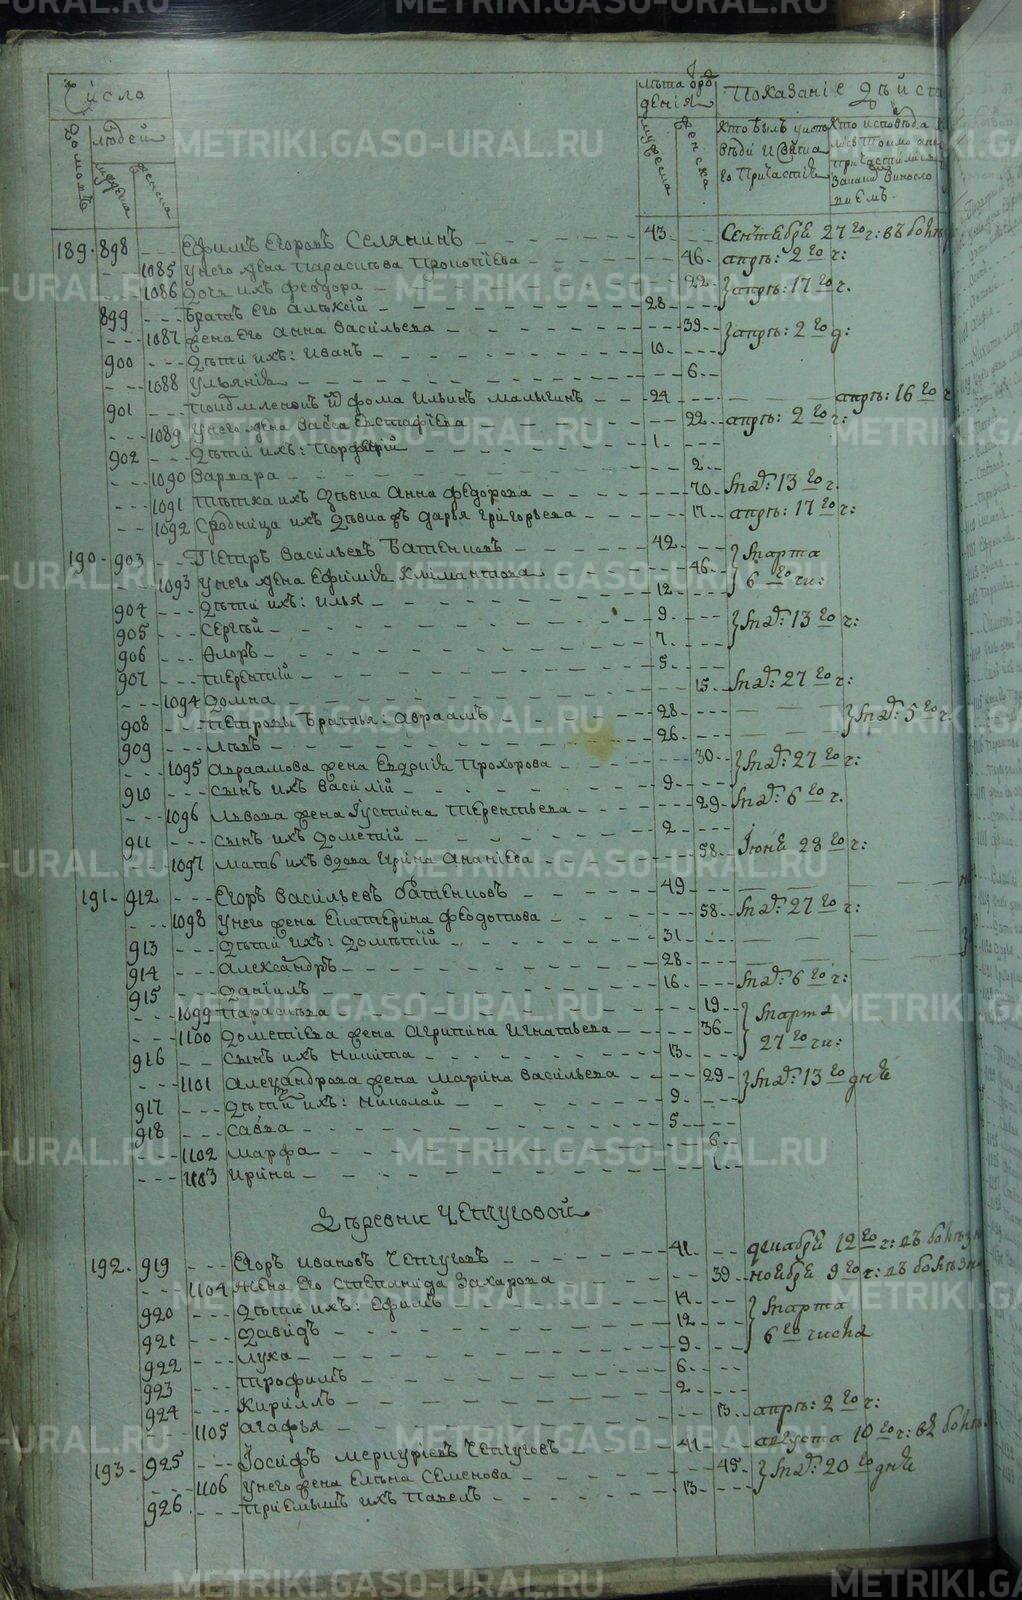 Число
Лѣта Рож
денія
Показаніе Дѣйст
Домовъ
Людей
Мужеска
Женска
Мужеска
Женска
Кто былъ у испо
вѣди и святаго причастія
Кто исповѣда
лись токмо а не
причастились
винословіемъ
189. 898 Ефимъ Егоровъ Селянинъ 43. Сентебре 27го ч: въ
1085 Унего жена Параскѣва Прокопіева 46. апрѣ: 2го ч:
1086 Дочь ихъ Феодора 22. апрѣ: 17го ч.
899 Братъ Его Алѣксій 28
1087 Жена Его Анна Васильева 39. апрѣ: 2го д:
900 Дѣти ихъ: Иванъ 10.
1088 Ульянія 6.
901 Фома Ильинъ Малыгинъ 24 апрѣ: 16го
1089 Унего жена Васса Евстафіева 22. апрѣ: 2го ч:
902 Дѣти ихъ: Порфирій 1.
1090 Варвара 2.
1091 Тіотка ихъ дѣвка Анна Федорова 70. 13го ч.
1092 Сродница ихъ дѣвка Дарья Григорьева 17. апрѣ: 17го ч:
190. 903 Петръ Васильевъ Батенковъ 42. Марта
1093 Унего жена Ефимія Климантова 46. 6го чи:
904 Дѣти ихъ: Илья 12.
905 Сергѣй 9. 13го ч:
906 Флоръ 7.
907 Терентій 5.
1094 Домна 15. 27го ч:
908 Петровы братья: Авраамъ 28 5го ч.
909 Львъ 26.
1095 Авраамова жена Евдокія Прохорова 30. 27го ч:
910 Сынъ ихъ Василій 9.
1096 Львова жена Іустина Терентьева 29. 6го ч.
911 Сынъ ихъ Дометій 2.
1097 Мать ихъ вдова Ирина Ананіева 58. Іюня 28го ч:
191. 912 Егоръ Васильевъ Батенковъ 49.
1098 Унего жена Екатерина Феодотова 58. 27го ч:
913 Дѣти ихъ: Домѣтій 31.
914 Александръ 28.
915 Даніилъ 16. 6го ч:
1099 Параскѣва 19. Марта
1100 Дометіева жена Агрипина Игнатьева 36. 27го чи:
916 Сынъ ихъ Никита 13.
1101 Александрова жена Марина Васильева 29. 13го дня
917 Дѣти ихъ: Николай 9.
918 Савва 5.
1102 Марфа 6.
1103 Ирина 1.
Деревни Чепчуговой
192. 919 Егоръ Ивановъ Чепчуговъ 41. Декабря 12го ч:
1104 Жена Его Степанида Захарова 39. Ноебря 9го ч:
920 Дѣти ихъ: Ефимъ 14. Марта
921 Давидъ 12. 6го числа
922 Лука 9.
923 Трофимъ 6.
924 Кирилъ 2.
1105 Агафья 13. апрѣ: 2го ч:
193. 925 Іосифъ Меркурьевъ Чепчуговъ 41. августа 10го ч:
1106 Унего жена Елѣна Семенова 45. 20го дня
926 Пріемышъ ихъ Павелъ 13.
METRIKI.GASO-URAL.RU